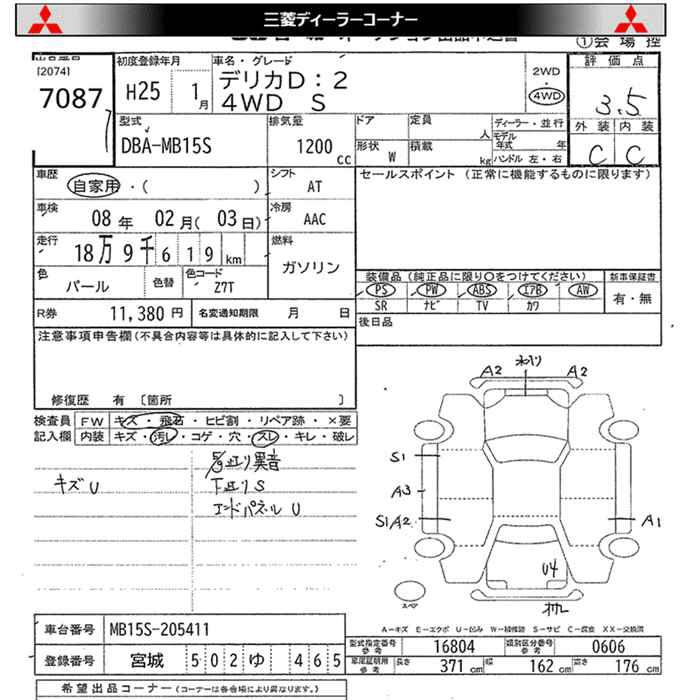 三菱ディーラーコーナー
①会場控
[2074]
7087
初度登録年月
H25 1月
車名・グレード
デリカD:2
4WD S
2WD
4WD
評価点
3.5
外装 内装
C C
型式
DBA-MB15S
排気量
1200 cc
ドア 定員 人
形状 W 積載 kg
ディーラー・並行
モデル年式 年
ハンドル 左・右
車歴
自家用・( )
シフト
AT
セールスポイント (正常に機能するものに限ります)
車検
08年 02月(03日)
冷房
AAC
走行
18万9千619km
燃料
ガソリン
色
パール
色替
色コード
Z7T
装備品(純正品に限り○をつけてください)
PS PW ABS エアB AW
SR ナビ TV カワ
新車保証書
有・無
R券 11,380円
名変通知期限 月 日
後日品
注意事項申告欄(不具合内容等は具体的に記入して下さい)
修復歴 有 〔箇所 〕
検査員記入欄
FW キズ・飛石・ヒビ割・リペア跡・×要
内装 キズ・汚レ・コゲ・穴・スレ・キレ・破レ
キズU
足廻り異音
下廻りS
エンドパネルU
A2 A2
S1
A3
S1A2
A1
U4
スペア
A-キズ E-エクボ U-凹み W-補修跡 S-サビ C-腐食 XX-交換済
車台番号 MB15S-205411
登録番号 宮城 502 ゆ 465
型式指定番号参考 16804
類別区分番号参考 0606
車庫証明用参考 長さ 371cm 幅 162cm 高さ 176cm
希望出品コーナー(コーナーは各会場により異なります。)